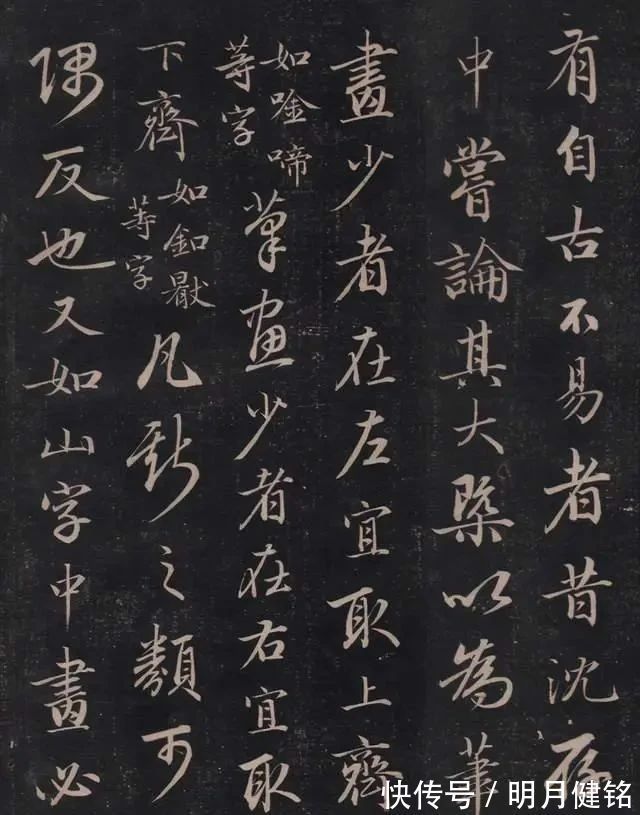 有自古不易者昔沈存
中嘗論其大槩以為筆
畫少者在左宜取上齊
如唫啼等字筆畫少者在右宜取
下齊如釦等字凡斯之類可
隅反也又如山字中畫必
快传号/明月健铭